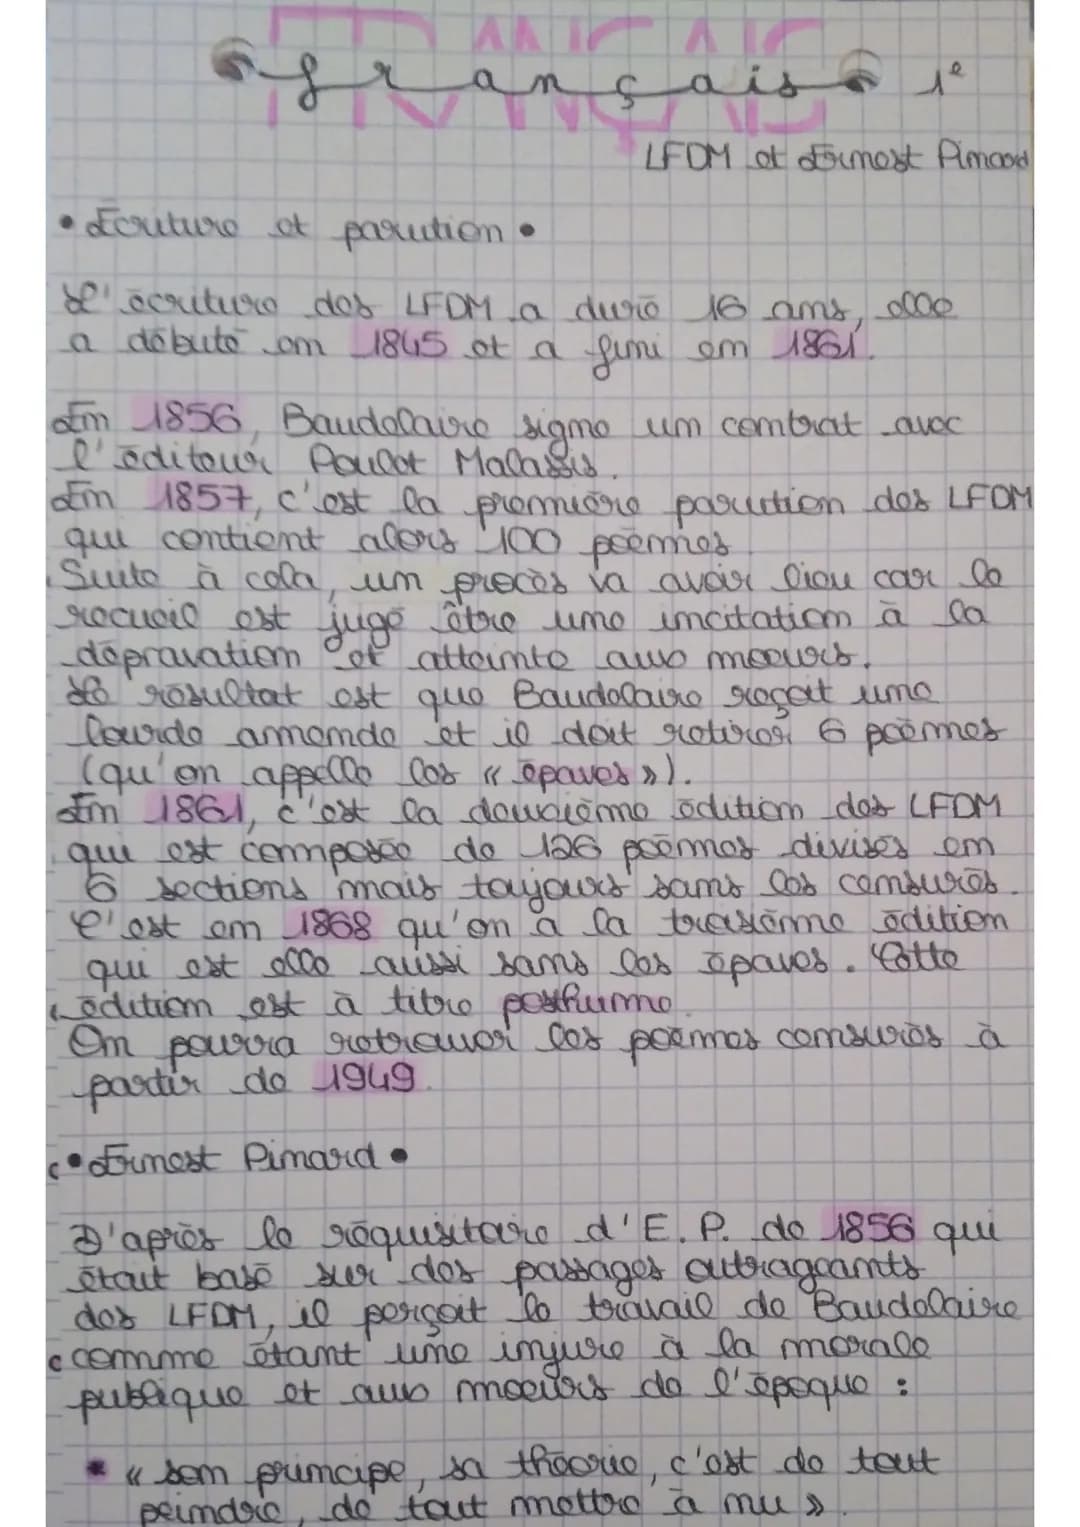 français 1e
LFDM et Ernest Pinard
• Écriture et parution •
L'écriture des LFDM a duré 16 ans, elle
a débuté en 1845 et a fini en 1861.
En 1856, Baudelaire signe un contrat avec
l'éditeur Poulet Malassis.
En 1857, c'est la première parution des LFDM
qui contient alors 100 poèmes
Suite à cela, un procès va avoir lieu car le
recueil est jugé être une incitation à la
dépravation et atteinte aux moeurs.
Le résultat est que Baudelaire reçoit une
lourde amende et il doit retirer 6 poèmes
(qu'on appelle les « épaves »).
En 1861, c'est la deuxième édition des LFDM
qui est composée de 126 poèmes divisés en
6 sections mais toujours sans les censurés.
C'est en 1868 qu'on a la troisième édition
qui est elle aussi sans les épaves. Cette
édition est à titre posthume.
On pourra retrouver les poèmes censurés à
partir de 1949.
• Ernest Pinard •
D'après le réquisitaire d'E. P. de 1856 qui
était basé sur des passages outrageants
des LFDM, il perçoit le travail de Baudelaire
comme étant une injure à la morale
publique et aux moeurs de l'époque :
* « son principe, sa théorie, c'est de tout
peindre, de tout mettre à nu ».